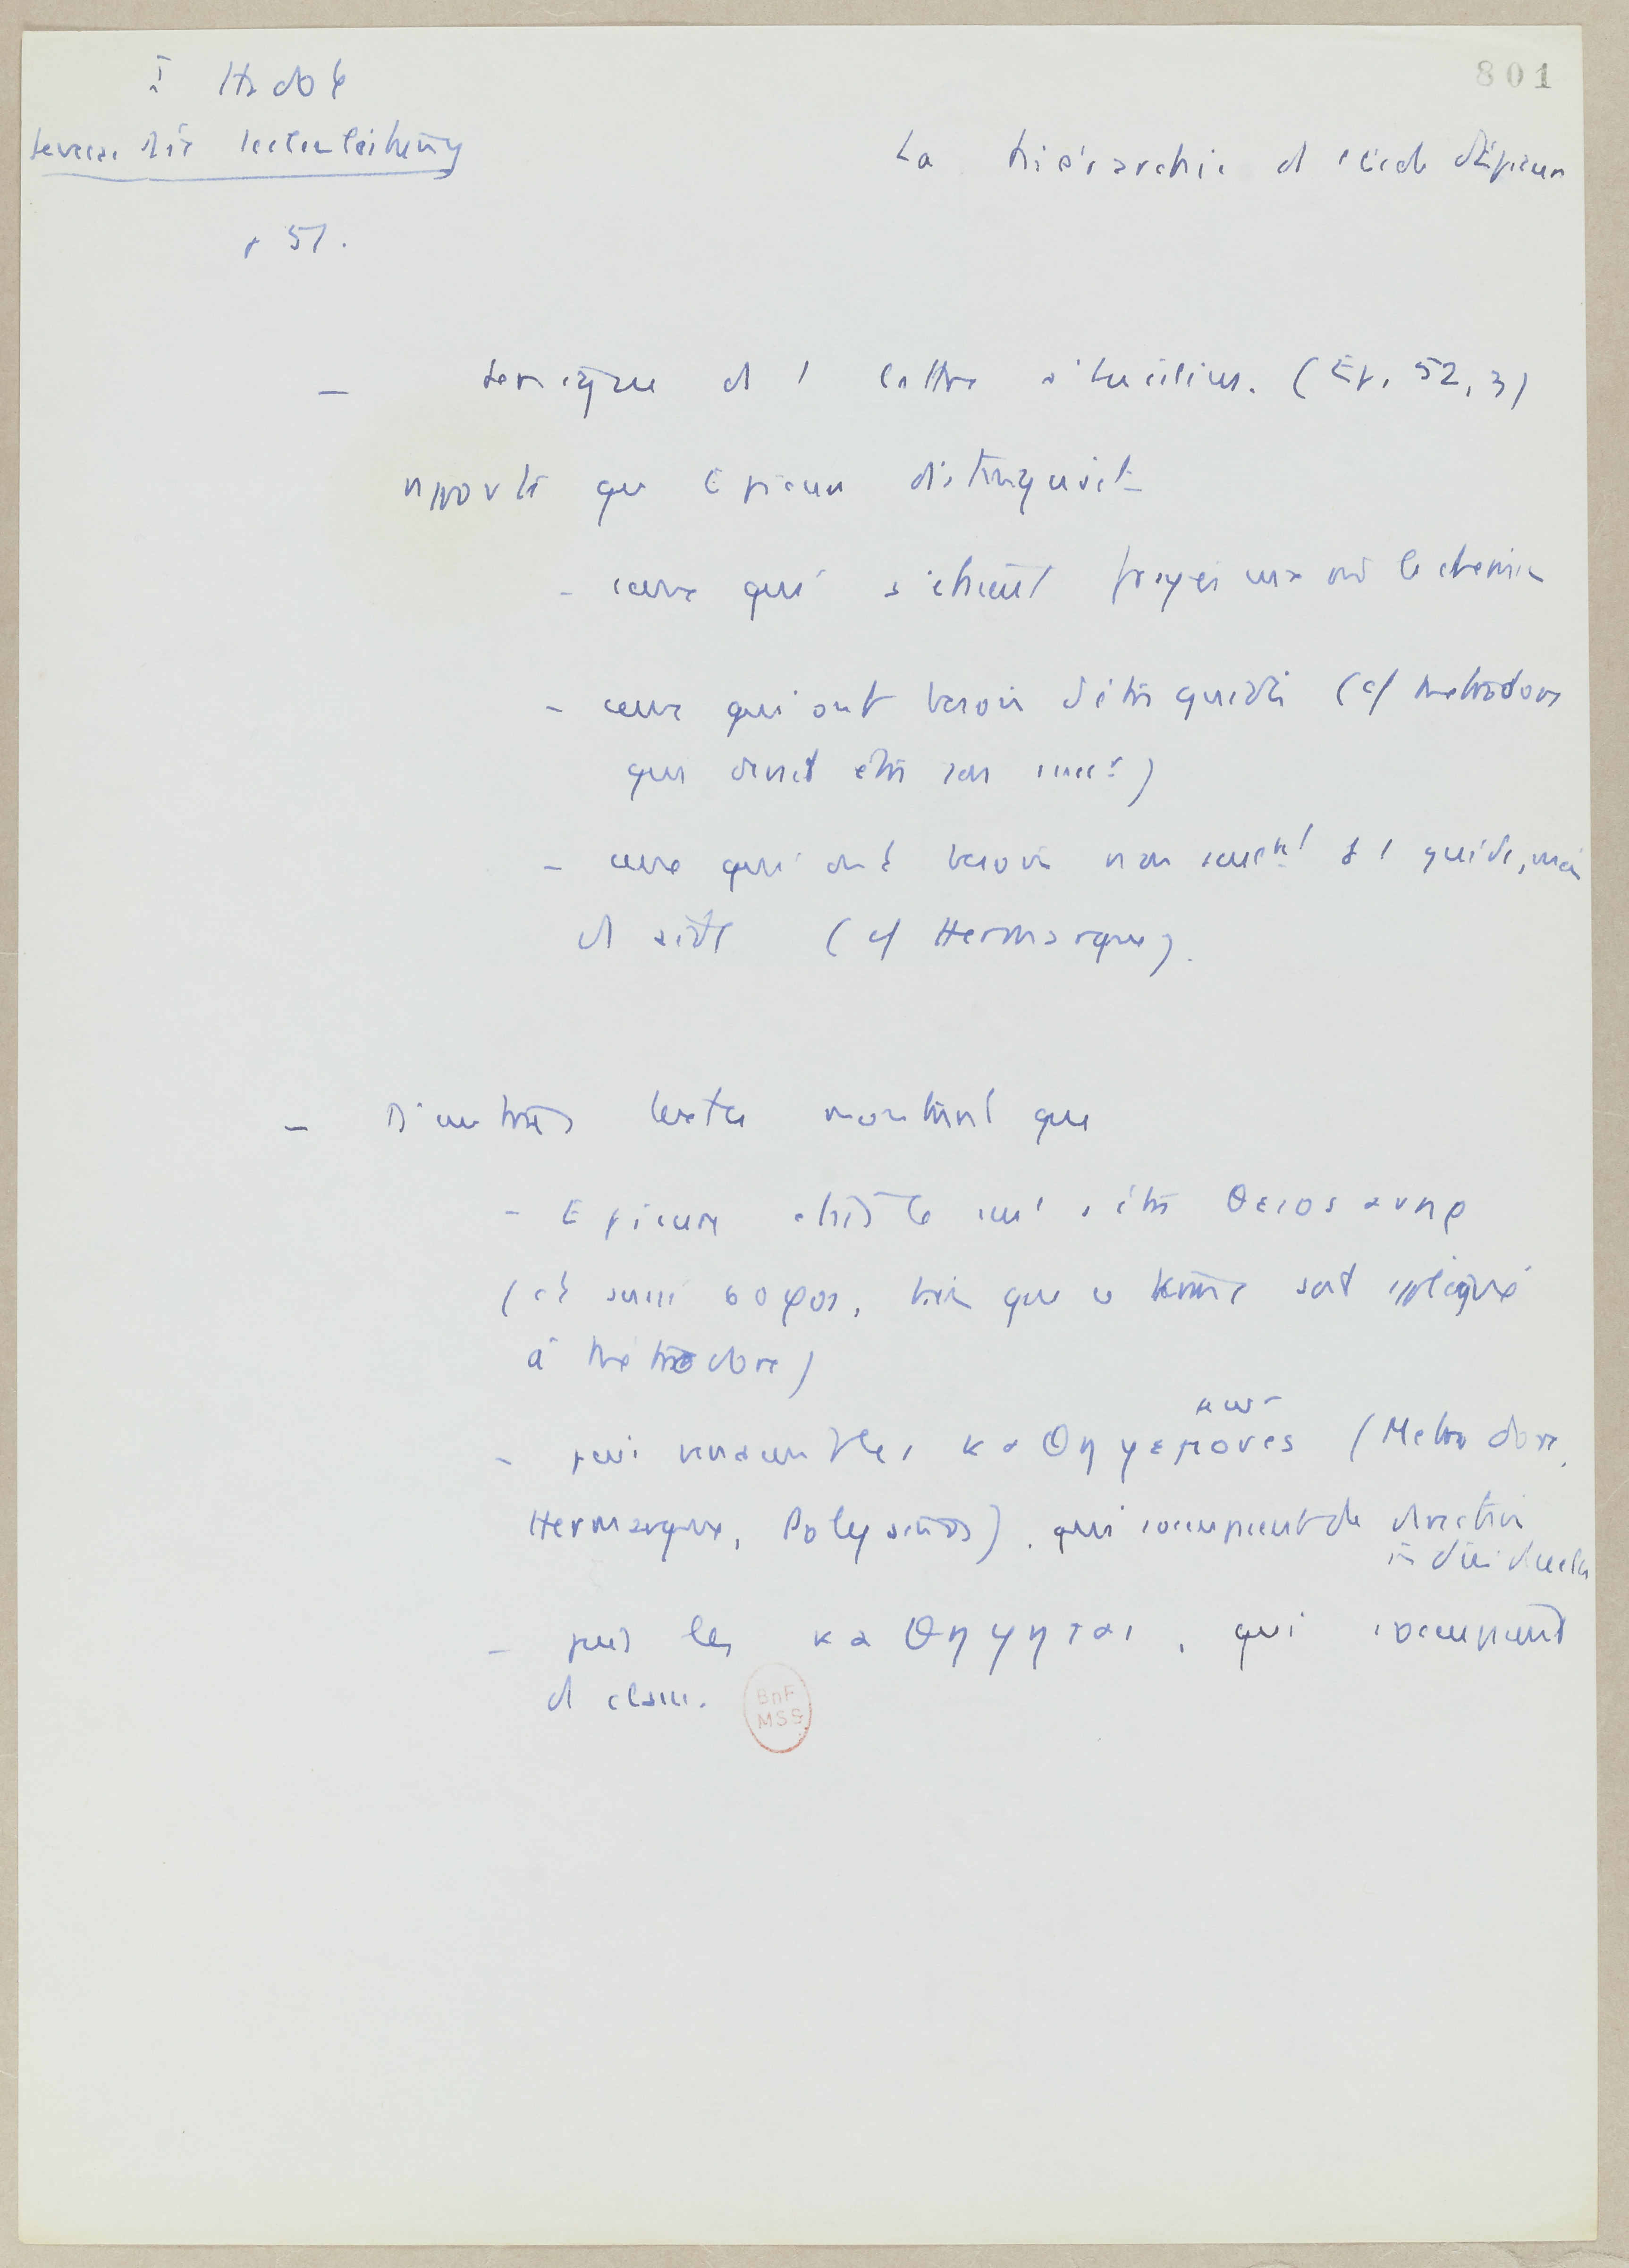 801
I Hadot
Seneca und Seelenleitung
p 51.
La hiérarchie de l'école d'Epicure
– Sénèque ds 1 lettre à Lucilius. (Ep. 52, 3)
rapporte que Epicure distinguait
- ceux qui s'étaient frayés eux mm le chemin
- ceux qui ont besoin d'être guidés (cf Metrodore
qui devait être son successr)
- ceux qui ont besoin non seulemt d'1 guide, mais
d'aide (cf Hermarque).
– D'autres textes montrent que
- Epicure était le seul à être θειος ανηρ
(et aussi σοφος, bien que ce terme soit appliqué
à Metrodore)
- puis venaient les καθηγεμονες (Metrodore,
Hermarque, Polyainos), qui s'occupaient de direction
individuelle
- puis les καθηγηται, qui s'occupaient
de classes.
BnF
MSS